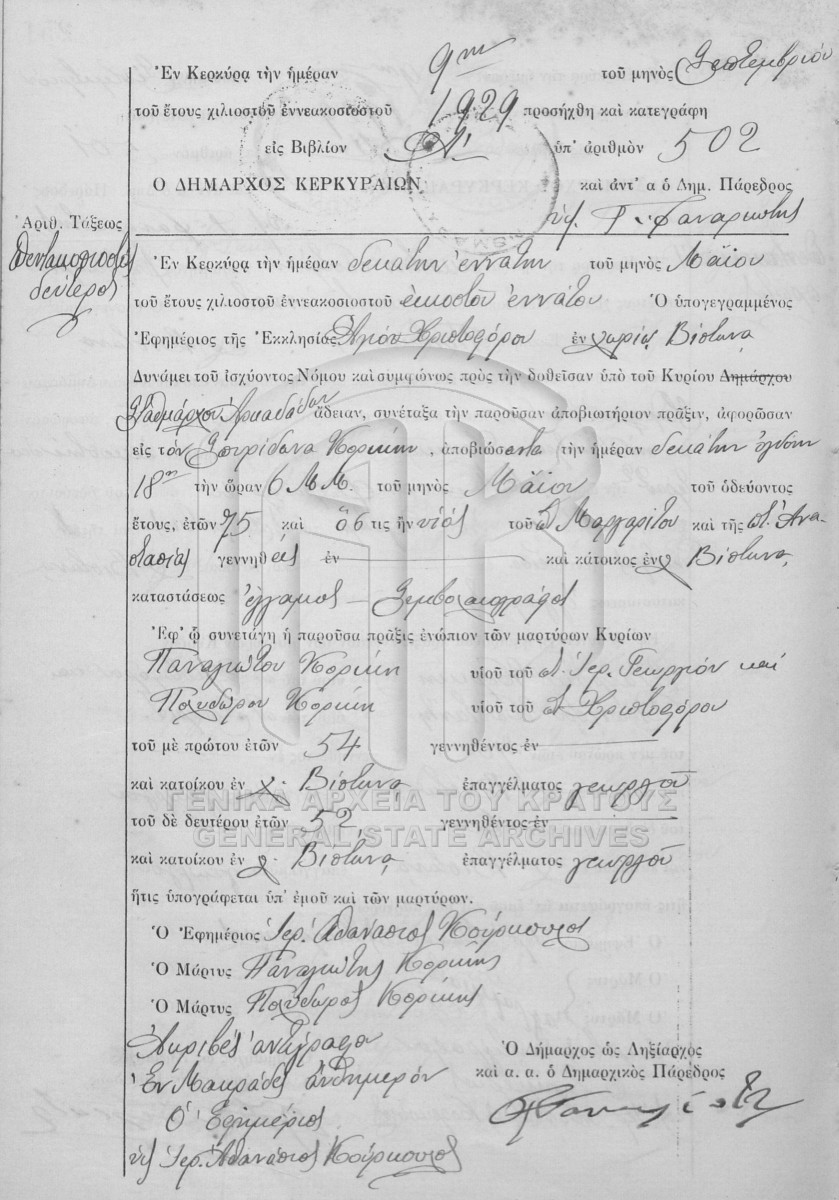 Ἐν Κερκύρᾳ τὴν ἡμέραν 9ην τοῦ μηνὸς Σεπτεμβρίου
τοῦ ἔτους χιλιοστοῦ ἐννεακοσιοστοῦ 1929 προσήχθη καὶ κατεγράφη
εἰς Βιβλίον Α' ὑπ' ἀριθμὸν 502
Ο ΔΗΜΑΡΧΟΣ ΚΕΡΚΥΡΑΙΩΝ καὶ ἀντ' α ὁ Δημ. Πάρεδρος
Ἀριθ. Τάξεως
Πεντακοσιοστὸς
δεύτερος
Ἐν Κερκύρᾳ τὴν ἡμέραν δεκάτην ἐννάτην τοῦ μηνὸς Μαΐου
τοῦ ἔτους χιλιοστοῦ ἐννεακοσιοστοῦ εἰκοστοῦ ἐννάτου Ὁ ὑπογεγραμμένος
Ἐφημέριος τῆς Ἐκκλησίας Ἁγίου Χριστοφόρου ἐν χωρίῳ Βίστωνα
Δυνάμει τοῦ ἰσχύοντος Νόμου καὶ συμφώνως πρὸς τὴν δοθεῖσαν ὑπὸ τοῦ Κυρίου Δημάρχου
Σταθμάρχου Ἀρκαδάδων ἄδειαν, συνέταξα τὴν παροῦσαν ἀποβιωτήριον πρᾶξιν, ἀφορῶσαν
εἰς τὸν Σπυρίδωνα Κορίκην, ἀποβιώσαντα τὴν ἡμέραν δεκάτην ὀγδόην
18ην τὴν ὥραν 6 Μ.Μ. τοῦ μηνὸς Μαΐου τοῦ ὁδεύοντος
ἔτους, ἐτῶν 75 καὶ ὅστις ἦν υἱὸς τοῦ Μαργαρίτου καὶ τῆς π. Ἀνα
στασίας γεννηθεὶς ἐν καὶ κάτοικος ἐν χ Βίστωνα
καταστάσεως ἔγγαμος — Συμβολαιογράφος
Ἐφ' ᾧ συνετάγη ἡ παροῦσα πρᾶξις ἐνώπιον τῶν μαρτύρων Κυρίων
Παναγιώτου Κορίκη υἱοῦ τοῦ π. Ἱερ. Γεωργίου καὶ
Πολυδώρου Κορίκη υἱοῦ τοῦ π Χριστοφόρου
τοῦ μὲ πρώτου ἐτῶν 54 γεννηθέντος ἐν
καὶ κατοίκου ἐν χ. Βίστωνα ἐπαγγέλματος γεωργοῦ
ΓΕΝΙΚΑ ΑΡΧΕΙΑ ΤΟΥ ΚΡΑΤΟΥΣ
τοῦ δὲ δευτέρου ἐτῶν 52 γεννηθέντος ἐν
GENERAL STATE ARCHIVES
καὶ κατοίκου ἐν χ. Βίστωνα ἐπαγγέλματος γεωργοῦ
ἥτις ὑπογράφεται ὑπ' ἐμοῦ καὶ τῶν μαρτύρων.
Ὁ Ἐφημέριος Ἱερ. Ἀθανάσιος Κούρκουλος
Ὁ Μάρτυς Παναγιώτης Κορίκης
Ὁ Μάρτυς Πολύδωρος Κορίκης
Ἀκριβὲς ἀντίγραφον
Ἐν Μακράδες αὐθημερόν
Ὁ Ἐφημέριος
Ἱερ. Ἀθανάσιος Κούρκουλος
Ὁ Δήμαρχος ὡς Ληξίαρχος
καὶ α. α. ὁ Δημαρχικὸς Πάρεδρος